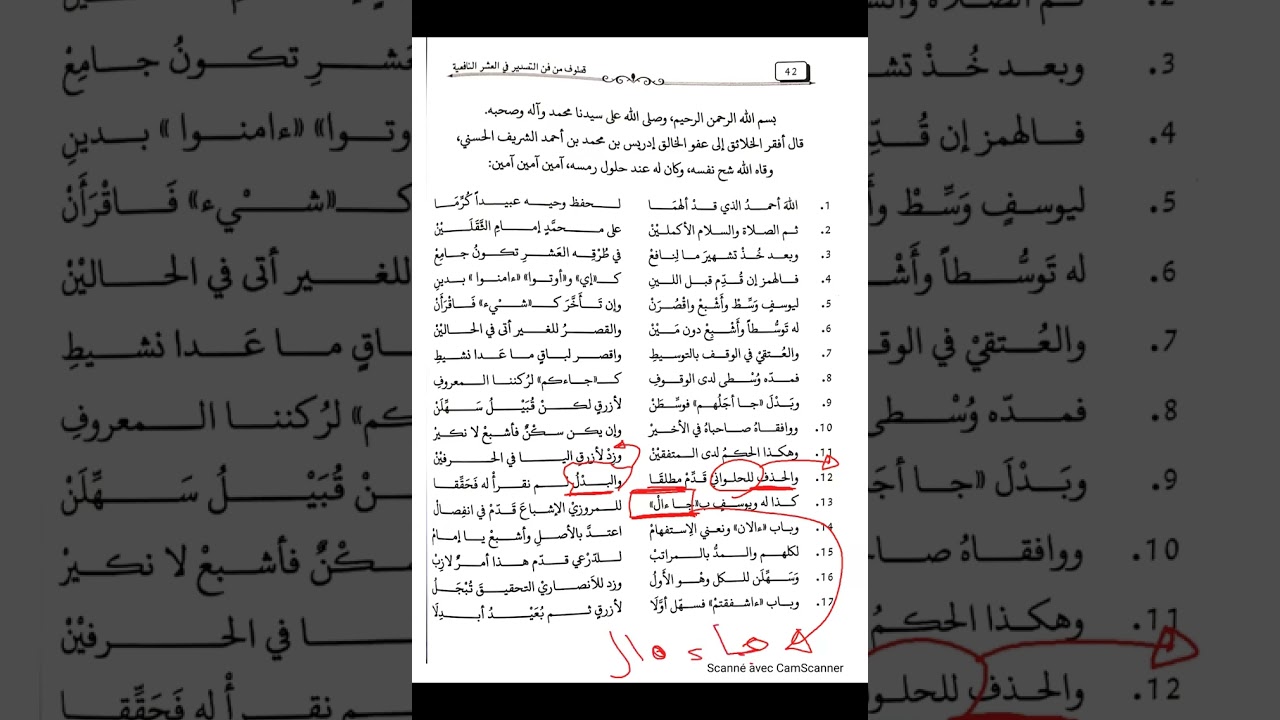 42
قطوف من فن التسدير في العشر النافعية
بسم الله الرحمن الرحيم، وصلى الله على سيدنا محمد وآله وصحبه.
قال أفقر الخلائق إلى عفو الخالق إدريس بن محمد بن أحمد الشريف الحسني،
وقاه الله شح نفسه، وكان له عند حلول رمسه، آمين آمين آمين:
1. اللهَ أحمدُ الذي قدْ ألهمَا لـحفظ وحيه عبيداً كُرِّمَا
2. ثم الصلاة والسلام الأكمليْنْ على محمَّدٍ إمامِ الثَّقَلَيْنْ
3. وبعد خُذْ تشهيرَ ما لِنافعْ في طُرْقِه العَشرِ تكونُ جامِعْ
4. فالهمز إن قُدِّم قبل اللينِ كـ«إي» و«أوتوا» «ءامنوا» بدينِ
5. ليوسفٍ وَسِّطْ وأَشْبِعْ واقْصُرَنْ وإن تَأَخَّرَ كـ«شيْء» فَاقْرَأَنْ
6. له تَوسُّطاً وأَشْبِعْ دون مَيْنْ والقصرُ للغير أتى في الحاليْنْ
7. والعُتقيْ في الوقف بالتوسيطِ واقصر لباقٍ ما عَدا نشيطِ
8. فمدّه وُسْطى لدى الوقوفِ كـ«جاءكم» لرُكننا المعروفِ
9. وبَدْلَ «جا أجَلُهم» فوسِّطَنْ لأزرقٍ لكنْ قُنْبُلٌ سَهِّلَنْ
10. ووافقاهُ صاحباهُ في الأخيرْ وإن يكن سكْنٌ فأشبعْ لا نكيرْ
11. وهكذا الحكمُ لدى المتفقيْنْ وزدْ لأزرقِ اليا في الحرفيْنْ
12. والحذف للحلواني قَدِّمْ مطلقَا والبدْلُ ثم نقرأْ له فَحَقِّقَا
13. كذا له ويوسفٍ بـ«جا ءالْ» للمروزيْ الإشباعَ قدّمْ في انفِصالْ
14. وباب «ءالان» ونعني الاِستفهامْ اعتدَّ بالأصلِ وأشبعْ يا إمامْ
15. لكلهم والمدُّ بالمراتبْ للدّرْعي قدّم هذا أمرٌ لازِبْ
16. وَسَهِّلَن للكل وهْو الأَولُ وزد للأنصاريْ التحقيقَ تُبْجَلُ
17. وباب «ءاشفقتمْ» فسهّل أوَّلَا لأزرقٍ ثم بُعَيْدُ أبدِلَا
جاء ءال
Scanné avec CamScanner